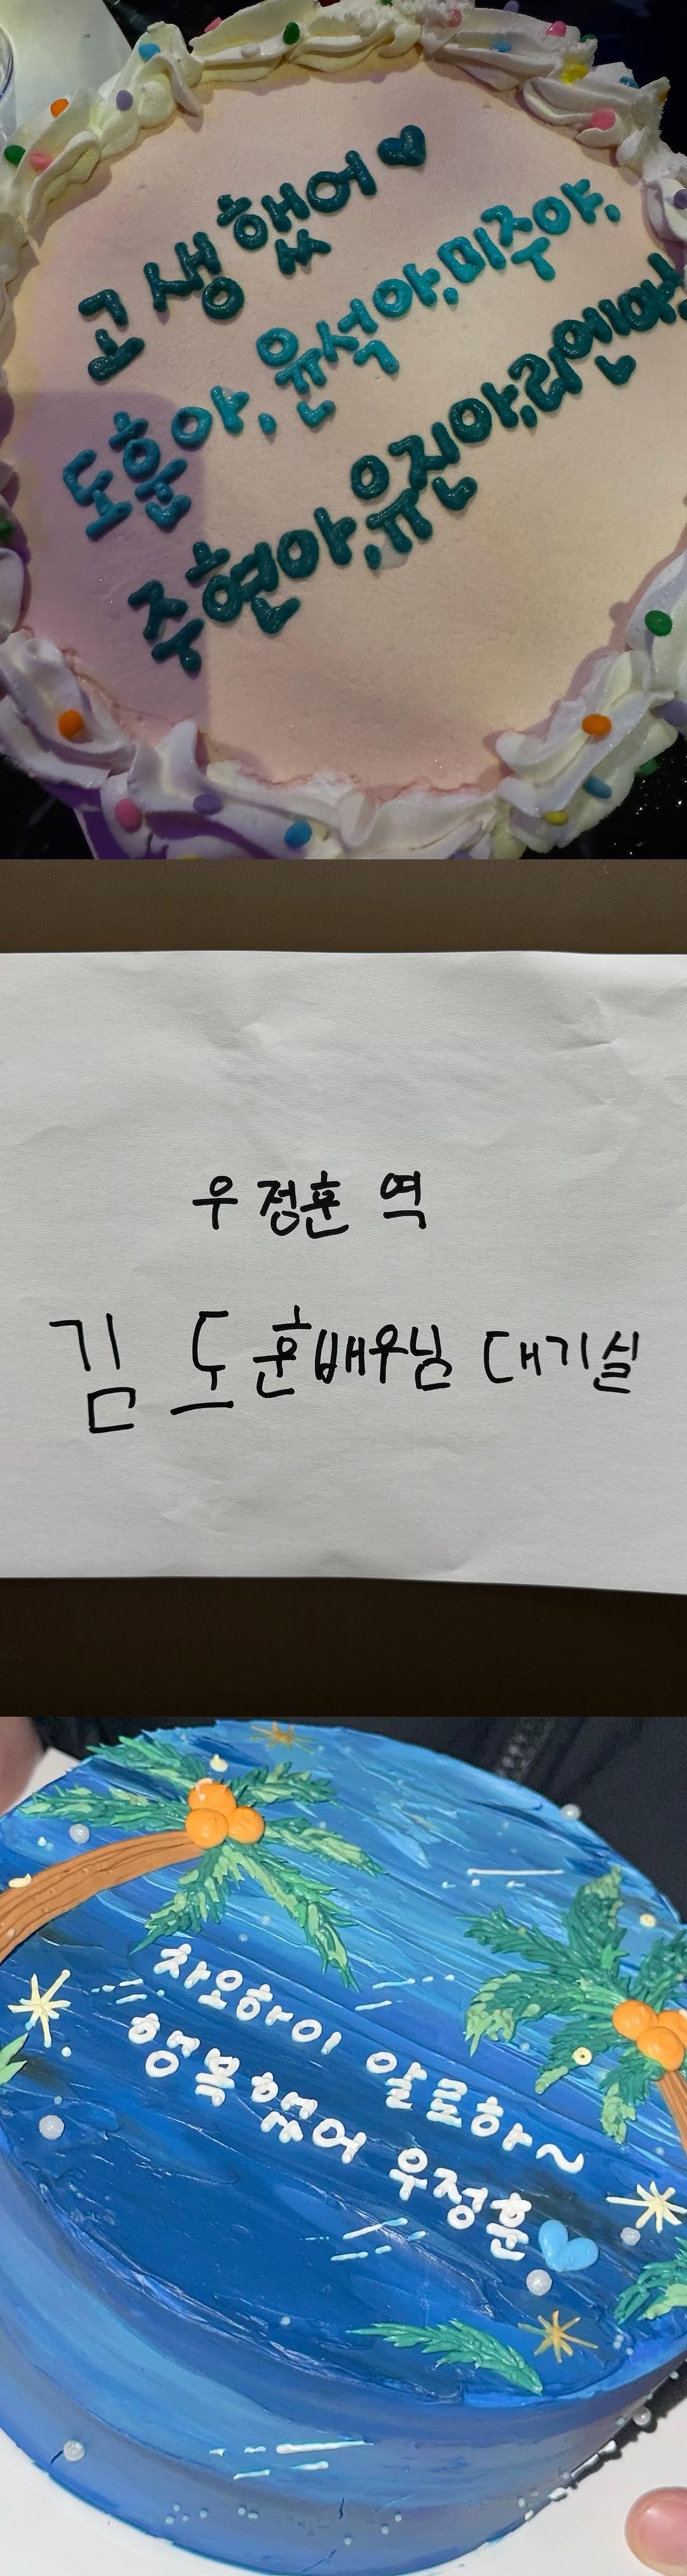 고생했어♥
도훈아, 윤석아, 미주야,
주현아, 유진아, 리언아!
우정훈 역
김도훈배우님 대기실
차오하이 알로하~
행복했어 우정훈